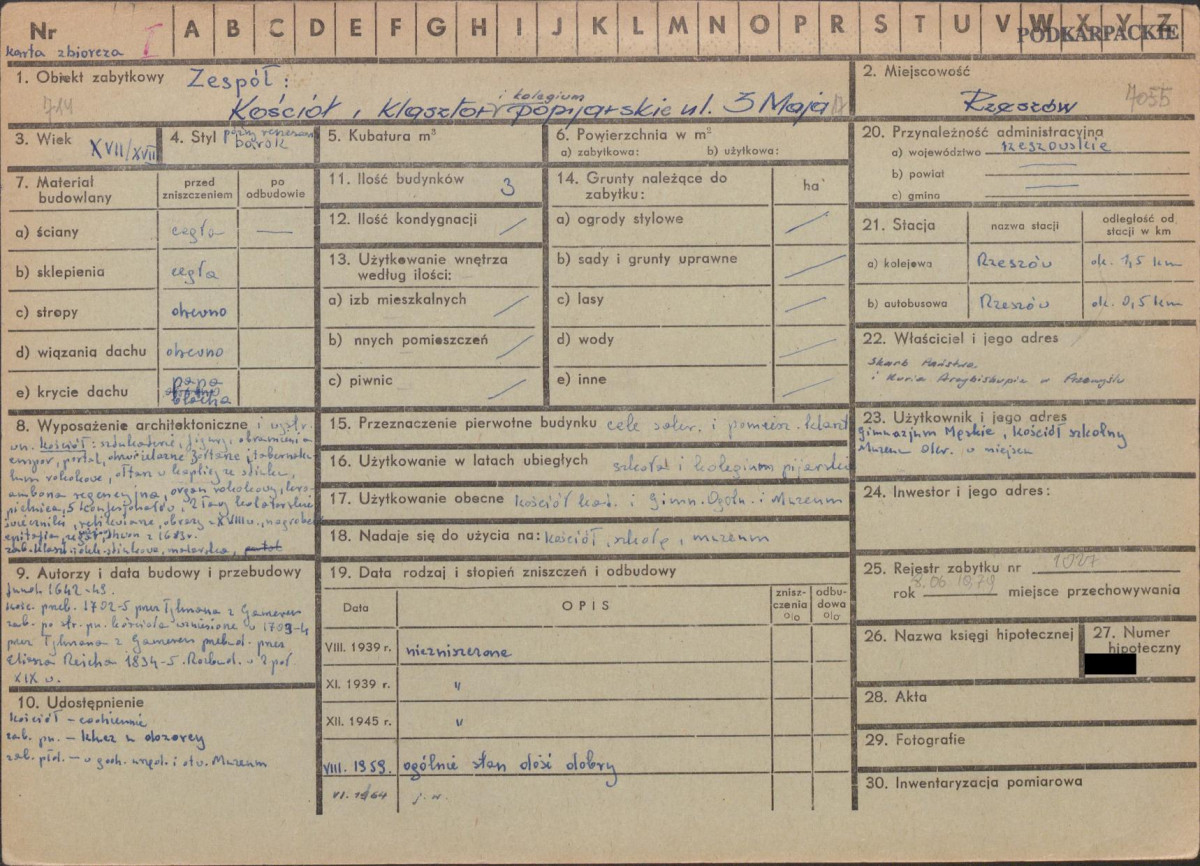 Nr
A B C D E F G H I J K L M N O P R S T U V W X Y Z
PODKARPACKIE
karta zbiorcza I
1. Obiekt zabytkowy Zespół:
i kolegium
Kościół, klasztor popijarskie ul. 3 Maja
714
2. Miejscowość
Rzeszów 7055
3. Wiek XVII/XVIII
4. Styl późny renesans barok
5. Kubatura m³
6. Powierzchnia w m²
a) zabytkowa: b) użytkowa:
7. Materiał budowlany
przed zniszczeniem
po odbudowie
a) ściany cegła —
b) sklepienia cegła
c) stropy drewno
d) wiązania dachu drewno
e) krycie dachu papa
blacha
8. Wyposażenie architektoniczne i wystr.
wn. kościół: sztukaterie, figury, obramienia
empor, portal, ołtarze i tabernaku-
lum rokokowe, ołtarz w kaplicy ze stiuku,
ambona regencyjna, organ rokokowy, kro-
pielnica, 5 konfesjonałów, 2 ławy kolatorskie
świeczniki, relikwiarze, obrazy z XVIII w., nagrobek
epitafia, dzwon z 1683 r.
zab. klaszt.: dek. stiukowa, malarska,
9. Autorzy i data budowy i przebudowy
fund. 1642-49.
kośc. przeb. 1702-5 przez Tylmana z Gameren
zab. po str. pn. kościoła wzniesione w 1703-4
przez Tylmana z Gameren przebud. przez
Eliasza Reicha 1834-5. Rozbud. w 2 poł.
XIX w.
10. Udostępnienie
Kościół – codziennie
zab. pn. – klucz u dozorcy
zab. płd. – w godz. urzęd. i otw. Muzeum
11. Ilość budynków 3
12. Ilość kondygnacji /
13. Użytkowanie wnętrza według ilości:
a) izb mieszkalnych /
b) nnych pomieszczeń /
c) piwnic /
14. Grunty należące do zabytku: ha
a) ogrody stylowe /
b) sady i grunty uprawne /
c) lasy /
d) wody /
e) inne /
15. Przeznaczenie pierwotne budynku cele sakr. i pomieszcz. klaszt
16. Użytkowanie w latach ubiegłych szkoła i kolegium pijarskie
17. Użytkowanie obecne kościół kat. i Gimn. Ogóln. i Muzeum
18. Nadaje się do użycia na: kościół, szkołę, muzeum
19. Data rodzaj i stopień zniszczeń i odbudowy
Data OPIS zniszczenia % odbudowa %
VIII. 1939 r. niezniszczone
XI. 1939 r. "
XII. 1945 r. "
VIII. 1959. ogólnie stan dość dobry
VI. 1964 j. w.
20. Przynależność administracyjna
a) województwo rzeszowskie
b) powiat —
c) gmina —
21. Stacja nazwa stacji odległość od stacji w km
a) kolejowa Rzeszów ok. 1,5 km
b) autobusowa Rzeszów ok. 0,5 km
22. Właściciel i jego adres
Skarb Państwa
i Kuria Arcybiskupia w Przemyślu
23. Użytkownik i jego adres
Gimnazjum Męskie, Kościół szkolny
Muzeum Okr. w miejscu
24. Inwestor i jego adres:
25. Rejestr zabytku nr 1027
rok 8.06 1979 miejsce przechowywania
26. Nazwa księgi hipotecznej
27. Numer hipoteczny
28. Akta
29. Fotografie
30. Inwentaryzacja pomiarowa